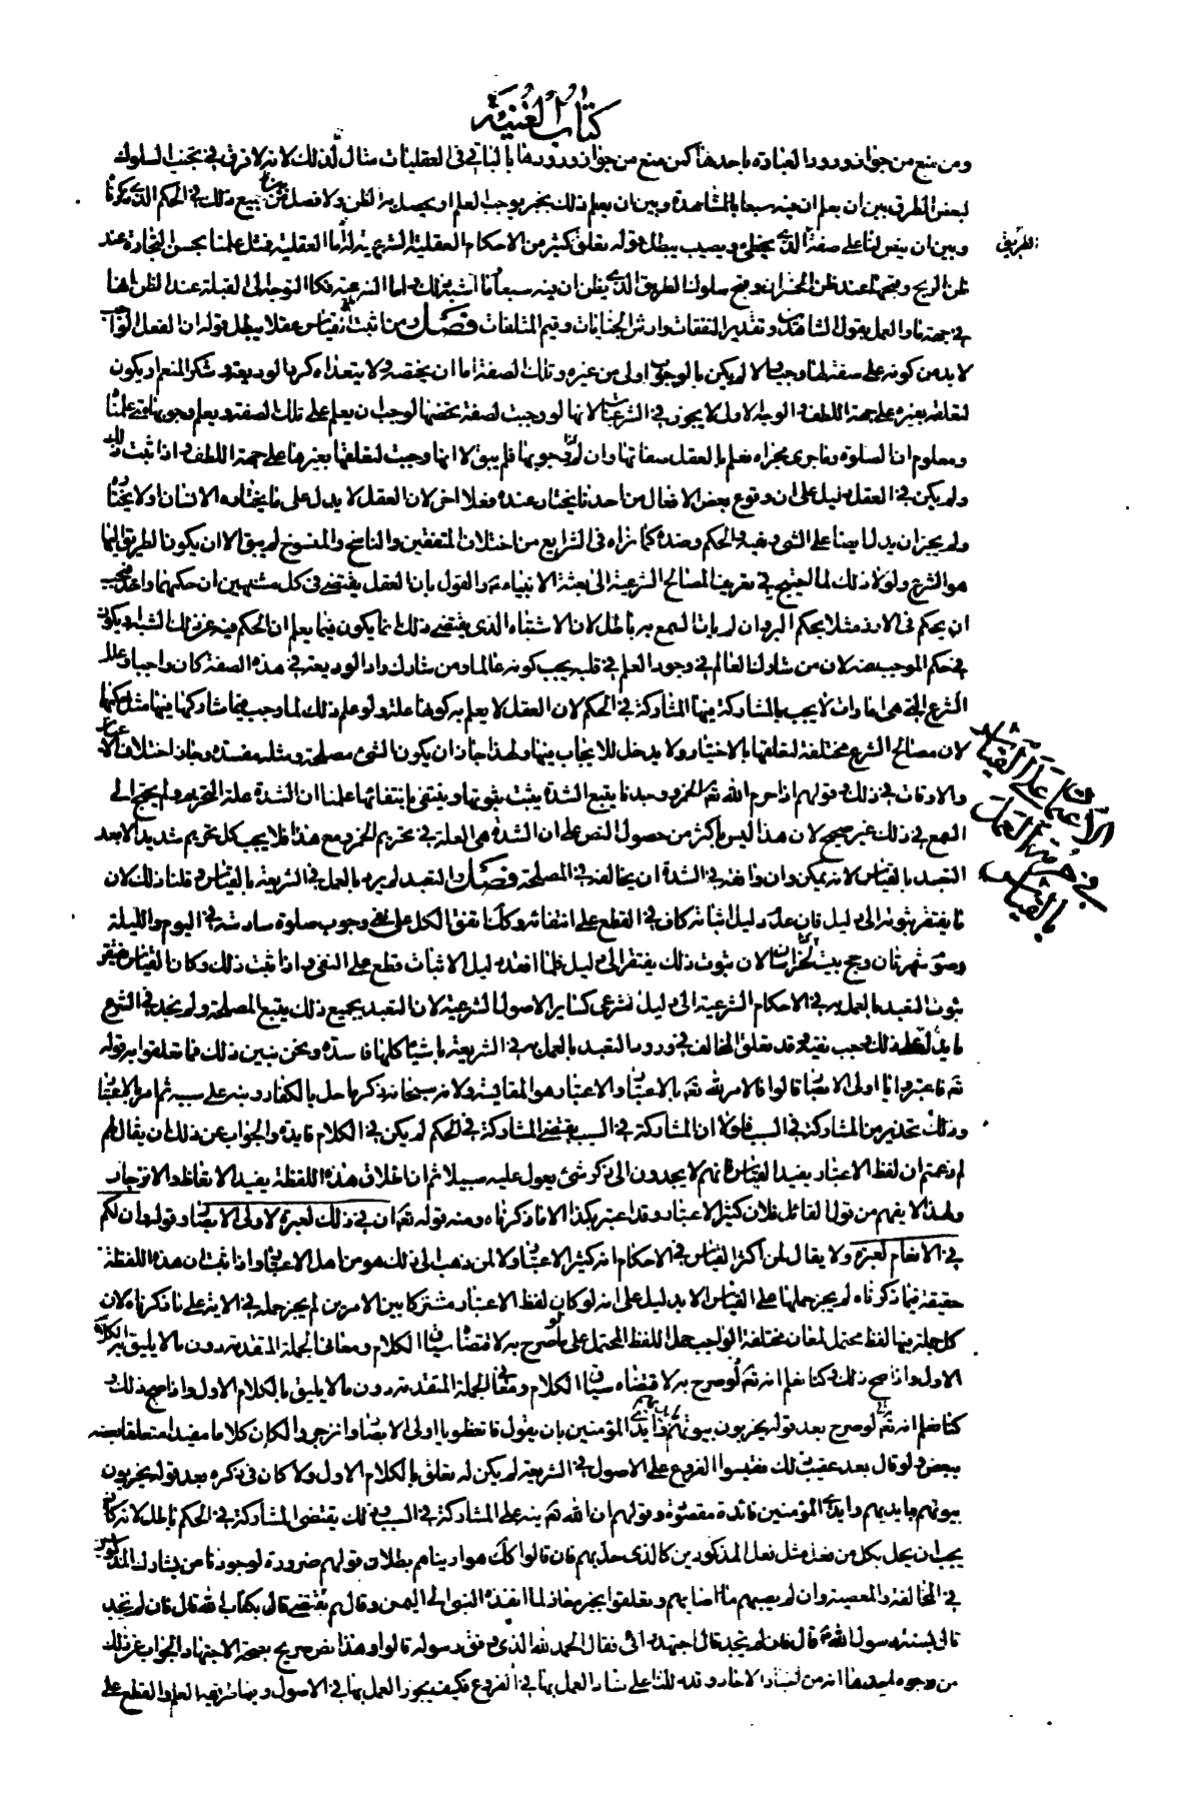 كتاب الغنية
ومن منع من جواز ورود العبادة باحدهما كمن منع من جواز ورودها بالباقي في العقليات مثال لذلك لانه لا فرق في تجنب السلوك
لبعض الطرق بين ان يعلم ان فيه سبعا بالمشاهدة وبين ان يعلم ذلك بخبر يوجب العلم او يحصل به الظن ولا فصل بين جميع ذلك في الحكم الذي ذكرنا
وبين ان ينص لنا على صفة الذي يخطي ويصيب يبطل قوله تعلق كثير من الاحكام العقلية الشرعية اما العقلية فمثل علمنا بحسن التجارة عند
الطريق
ظن الربح وقبحها عند ظن الخسران وقبح سلوك الطريق الذي يظن ان فيه سبعا وما اشبه ذلك واما الشرعية فكالتوجه الى القبلة عند الظن انها
في جهة ما والعمل بقول الشاهدين وتقدير النفقات وارش الجنايات وقيم المتلفات فصل ومن اثبت القياس عقلا يبطل قوله ان الفعل الواجب
لا بد من كونه على صفة لها وجب والا لم يكن بالوجوب اولى من غيره وتلك الصفة اما ان يختصه ولا يتعداه كرد الوديعة وشكر المنعم او يكون
لتعلقه بغيره على جهة اللطف والوجه الاول لا يجوز في الشرعيات لانها لو وجبت لصفة تخصها لوجب ان يعلم على تلك الصفة ويعلم وجوبها متى علمنا
ومعلوم ان الصلوة وما جرى مجراه نعلم بالعقل صفاتها وان لم وجوبها فلم يبق الا انها وجبت لتعلقها بغيرها على جهة اللطف واذا ثبت ذلك
ولم يكن في العقل دليل على ان وقوع بعض الافعال من احدنا يختار عنده فعلا اخر لان العقل لا يدل على ما يختاره الانسان او لا يختاره
ولم يجز ان يدل ايضا على الشئ ونفيه والحكم وضده كما نراه في الشرايع من اختلاف المتفقين والناسخ والمنسوخ لم يبق الا ان يكون الطريق اليها
هو الشرع ولولا ذلك لما احتيج في تعريف المصالح الشرعية الى بعثة الانبياء والقول بان العقل يقتضي في كل مشتبهين ان حكمهما واحد فيجب
ان يحكم في الارز مثلا بحكم البر وان لم يات السمع به باطل لان الاشتباه الذي يقتضي ذلك انما يكون فيما يعلم ان الحكم فيه عن ذلك الشبه ويكون
في حكم الموجب عنه لان من شارك العالم في وجود العلم في قلبه يجب كونه عالما ومن شارك راد الوديعة في هذه الصفة كان واجبا وعلل
الشرع التي هي امارات لا يجب بالمشاركة فيها المشاركة في الحكم لان العقل لا يعلم به كونها علة ولو علم ذلك لما وجب فيما شاركها فيها مثل حكمها
لان مصالح الشرع مختلفة لتعلقها بالاختيار ولا يدخل للايجاب فيها ولهذا جاز ان يكون الشئ مصلحة ومثله مفسدة وجاز اختلاف الاعيان
والاوقات في ذلك وقولهم اذا حرم الله تعالى الخمر وجدنا يتبع الشدة يثبت بثبوتها وينتفي بانتفائها علمنا ان الشدة علة التحريم ولم يحتج الى
السمع في ذلك غير صحيح لان هذا ليس باكثر من حصول النص على ان الشدة هي العلة في تحريم الخمر ومع هذا فلا يجب كل تحريم شديد الا بعد
الاعتراض على القياس
في حرمة العمل
بالقياس
التعبد بالقياس لانه يمكن وان وافقه في الشدة ان يخالفه في المصلحة فصل والتعبد لم يرد بالعمل في الشريعة بالقياس وقلنا ذلك لان
ما يفتقر ثبوته الى دليل فان عدم دليل اثباته كاف في القطع على انتفائه وكذا نفى الكل على نفي وجوب صلوة سادسة في اليوم والليلة
وصوم شهر ثان وحج بيت بخراسان لان ثبوت ذلك يفتقر الى دليل فلما فقد دليل الاثبات قطع على النفي واذا ثبت ذلك وكان القياس يفتقر
ثبوت التعبد بالعمل به في الاحكام الشرعية الى دليل شرعي كسائر الاصول الشرعية لان التعبد بجميع ذلك يتبع المصلحة ولم نجد في الشرع
ما يدل على ذلك وجب نفيه وقد تعلق المخالف في ورود التعبد بالعمل به في الشريعة باشياء كلها فاسدة ونحن نبين ذلك فما تعلقوا به قوله
تعالى فاعتبروا يا اولى الابصار قالوا فالامر منه تعالى بالاعتبار والاعتبار هو المقايسة ولانه سبحانه ذكر ما حل بالكفار ونبه على سببه ثم امر بالاعتبار
وذلك تحذير من المشاركة في السبب فلولا ان المشاركة في السبب يقتضي المشاركة في الحكم لم يكن في الكلام فايدة والجواب عن ذلك ان يقال لهم
لم زعمتم ان لفظ الاعتبار يفيد القياس فانهم لا يجدون الى ذكر شئ يعول عليه سبيلا ثم ان اطلاق هذه اللفظة يفيد الاتعاظ والانزجار
ولهذا لا يفهم من قول القائل فلان كثير الاعتبار وقد اعتبر بكذا الا ما ذكرناه ومنه قوله تعالى ان في ذلك لعبرة لاولى الابصار وقوله وان لكم
في الانعام لعبرة ولا يقال لمن اكثر القياس في الاحكام انه كثير الاعتبار ولا لمن ذهب الى ذلك هو من اهل الاعتبار واذا ثبت ان هذه اللفظة
حقيقة فيما ذكرناه لم يجز حملها على القياس الا بدليل على انه لو كان لفظ الاعتبار مشتركا بين الامرين لم يجز حمله في الاية على ما ذكرناه لان
كل جملة فيها لفظ محتمل لمعان مختلفة الواجب حمل اللفظ المحتمل على ما لو صرح به لاقتضاه سياق الكلام ومعاني الجملة المتقدمة دون ما لا يليق به الكلام
الاول واذا صح ذلك وكنا نعلم انه تعالى لو صرح به لاقتضاه سياق الكلام ومعاني الجملة المتقدمة دون ما لا يليق بالكلام الاول واذا صح ذلك و
كنا نعلم انه تعالى لو صرح بعد قوله يخربون بيوتهم بايديهم وايدي المؤمنين بان يقول فاتعظوا يا اولى الابصار وانزجروا لكان كلاما مفيدا متعلقا بعضه
ببعض ولو قال بعد عقيب ذلك فقيسوا الفروع على الاصول في الشريعة لم يكن له تعلق بالكلام الاول ولا كان في ذكره بعد قوله يخربون
بيوتهم بايديهم وايدي المؤمنين فائدة مقصودة وقولهم ان الله تعالى نبه على المشاركة في السبب وذلك يقتضي المشاركة في الحكم باطل لانه كان
يجب ان يحل بكل من فعل مثل فعل المذكورين كالذي حل بهم فان قالوا كذلك هو اريناهم بطلان قولهم ضرورة لوجود من يشارك المذكورين
في المخالفة والمعصية وان لم يصبهم ما اصابهم وتعلقوا بخبر معاذ لما انفذه النبي الى اليمن وقال بم تقضي قال بكتاب الله قال فان لم تجد
قال بسنة رسول الله قال فان لم تجد قال اجتهد رائي فقال الحمد لله الذي وفق رسوله قالوا وهذا نص صريح بصحة الاجتهاد والجواب عن ذلك
من وجوه احدها انه من اخبار الاحاد وقد دللنا على فساد العمل بها في الفروع فكيف يجوز العمل بها في الاصول وبما طريقه العلم والقطع على